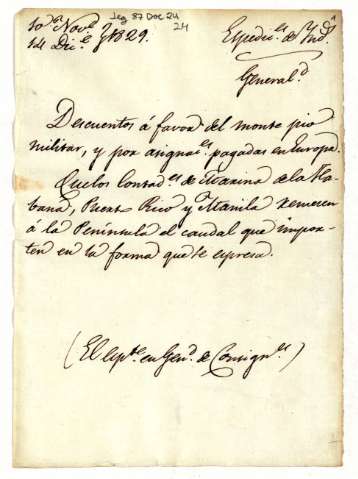 10 Nov.e
14 Dic.e y 1829.
Leg 87 Doc 24
24
Expedic.s de Ind.s
General.d
Descuentos á favor del monte pio
militar, y por asignac.s pagadas en Europa.
Que los Contad.s de Marina de la Ha-
bana, Puerto Rico y Manila remesen
á la Península el caudal que impor-
ten en la forma que se espresa.
(El exp.te en Gen.d de Consign.s)